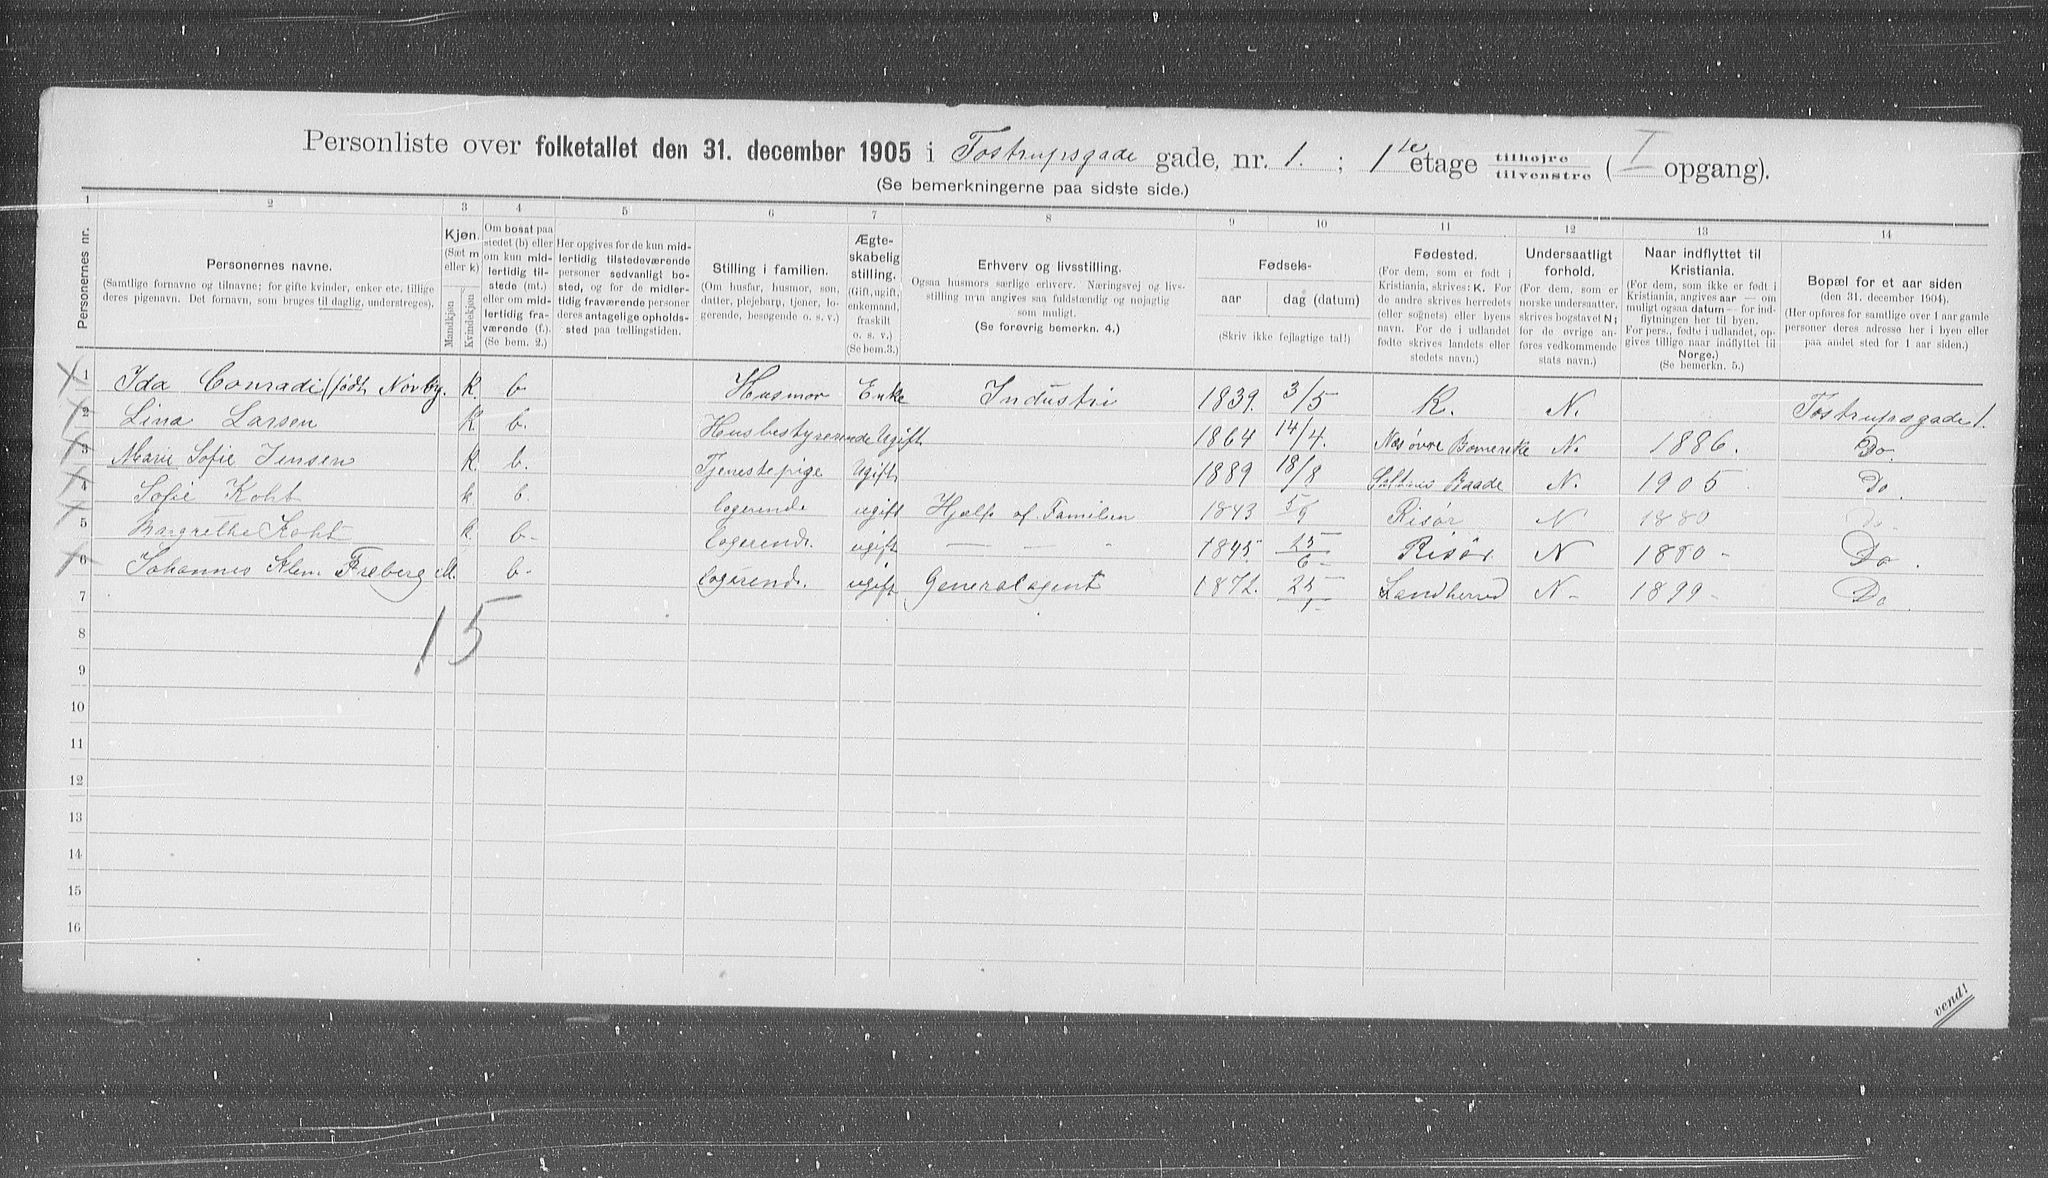 Personliste over folketallet den 31. december 1905 i Tostrupsgade gade, nr. 1. ; 1ste etage tilhøjre tilvenstre ( I opgang).
(Se bemerkningerne paa sidste side.)
1 2 3 4 5 6 7 8 9 10 11 12 13 14
Personernes nr.
Personernes navne.
(Samtlige fornavne og tilnavne; for gifte kvinder, enker etc. tillige deres pigenavn. Det fornavn, som bruges til daglig, understreges).
Kjøn.
(Sæt m eller k)
Mandkjøn
Kvindekjøn
Om bosat paa stedet (b) eller om kun midlertidig tilstede (mt.) eller om midlertidig fraværende (f.). (Se bem. 2.)
Her opgives for de kun midlertidig tilstedeværende personer sedvanligt bosted, og for de midlertidig fraværende personer deres antagelige opholdssted paa tællingstiden.
Stilling i familien.
(Om husfar, husmor, søn, datter, plejebarn, tjener, logerende, besøgende o. s. v.)
Ægteskabelig stilling.
(Gift, ugift, enkemand, fraskilt o. s. v.) (Se bem. 3.)
Erhverv og livsstilling.
Ogsaa husmors særlige erhverv. Næringsvej og livsstilling maa angives saa fuldstændig og nøjagtig som muligt.
(Se forøvrig bemerkn. 4.)
Fødsels-
aar
dag (datum)
(Skriv ikke fejlagtige tal!)
Fødested.
(For dem, som er født i Kristiania, skrives: K. For de andre skrives herredets (eller sognets) eller byens navn. For de i udlandet fødte skrives landets eller stedets navn.)
Undersaatligt forhold.
(For dem, som er norske undersaatter, skrives bogstavet N; for de øvrige anføres vedkommende stats navn.)
Naar indflyttet til Kristiania.
(For dem, som ikke er født i Kristiania, angives aar — om muligt ogsaa datum — for indflytningen her til byen. For pers., fødte i udlandet, opgives tillige naar indflyttet til Norge.) (Se bemerkn. 5.)
Bopæl for et aar siden
(den 31. december 1904).
(Her opføres for samtlige over 1 aar gamle personer deres adresse her i byen eller paa andet sted for 1 aar siden.)
1 Ida Conradi (født Norby. K b. Husmor Enke Industri 1839. 3/5 K. N. Tostrupsgade 1.
2 Lina Larsen K. b. Husbestyrerende Ugift 1864 14/4. N. 1886. Do.
3 Marie Sofie Jensen K. b. Tjenestepige Ugift 1889 18/8 N. 1905 Do.
4 Sofie Koht k b. logerende ugift Hjælp af Familien 1843 5/9 Risør N 1880 Do.
5 Margrethe Koht k. b. logerende. ugift — — " 1845. 25/6 Risør N 1880 Do.
6 Johannes Klem. Freberg M. b. logerende. ugift Generalagent 1872. 25/1 Landherred N 1899 Do.
7
15
8
9
10
11
12
13
14
15
16
vend!